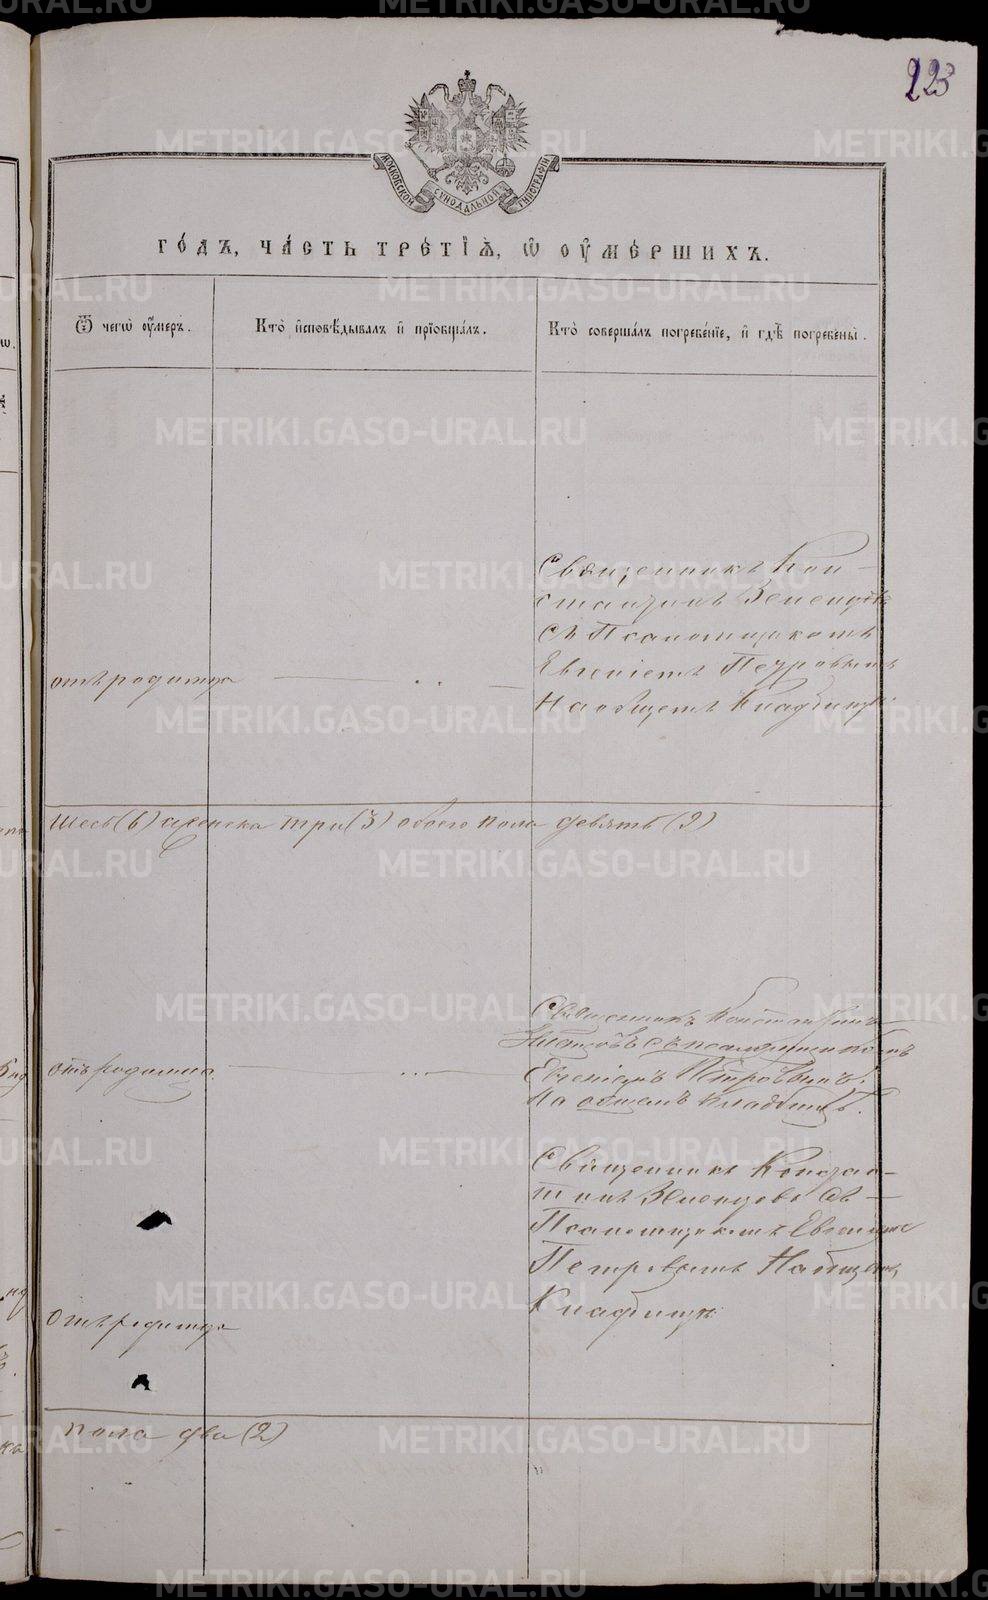 223
МОСКОВСКОЙ СѴНОДАЛЬНОЙ ТИПОГРАФІИ
ГО́ДЪ, ЧА́СТЬ ТРЕ́ТІѦ, Ѡ ОУМЕ́РШИХЪ.
Ѿ чегѡ̀ оу҆́меръ.
Кто̀ и҆сповѣ́дывалъ и҆ прїобща́лъ.
Кто̀ соверша́лъ погребе́нїе, и҆ гдѣ̀ погребены̀.
Священникъ Кон-
стантинъ Земенцовъ
съ Псаломщикомъ
Евгеніемъ Петровымъ
На общемъ Кладбищѣ
отъ родимца
шесь (6) женска три (3) обоего пола девять (9)
Священникъ Константинъ
съ псаломщикомъ
Евгеніемъ Петровымъ.
На общемъ кладбищѣ.
отъ родимца.
Священникъ Констан-
тинъ Съ
Псаломщикомъ Евгеніемъ
Петровымъ На общемъ
Кладбищѣ
отъ родимца
пола два (2)
METRIKI.GASO-URAL.RU